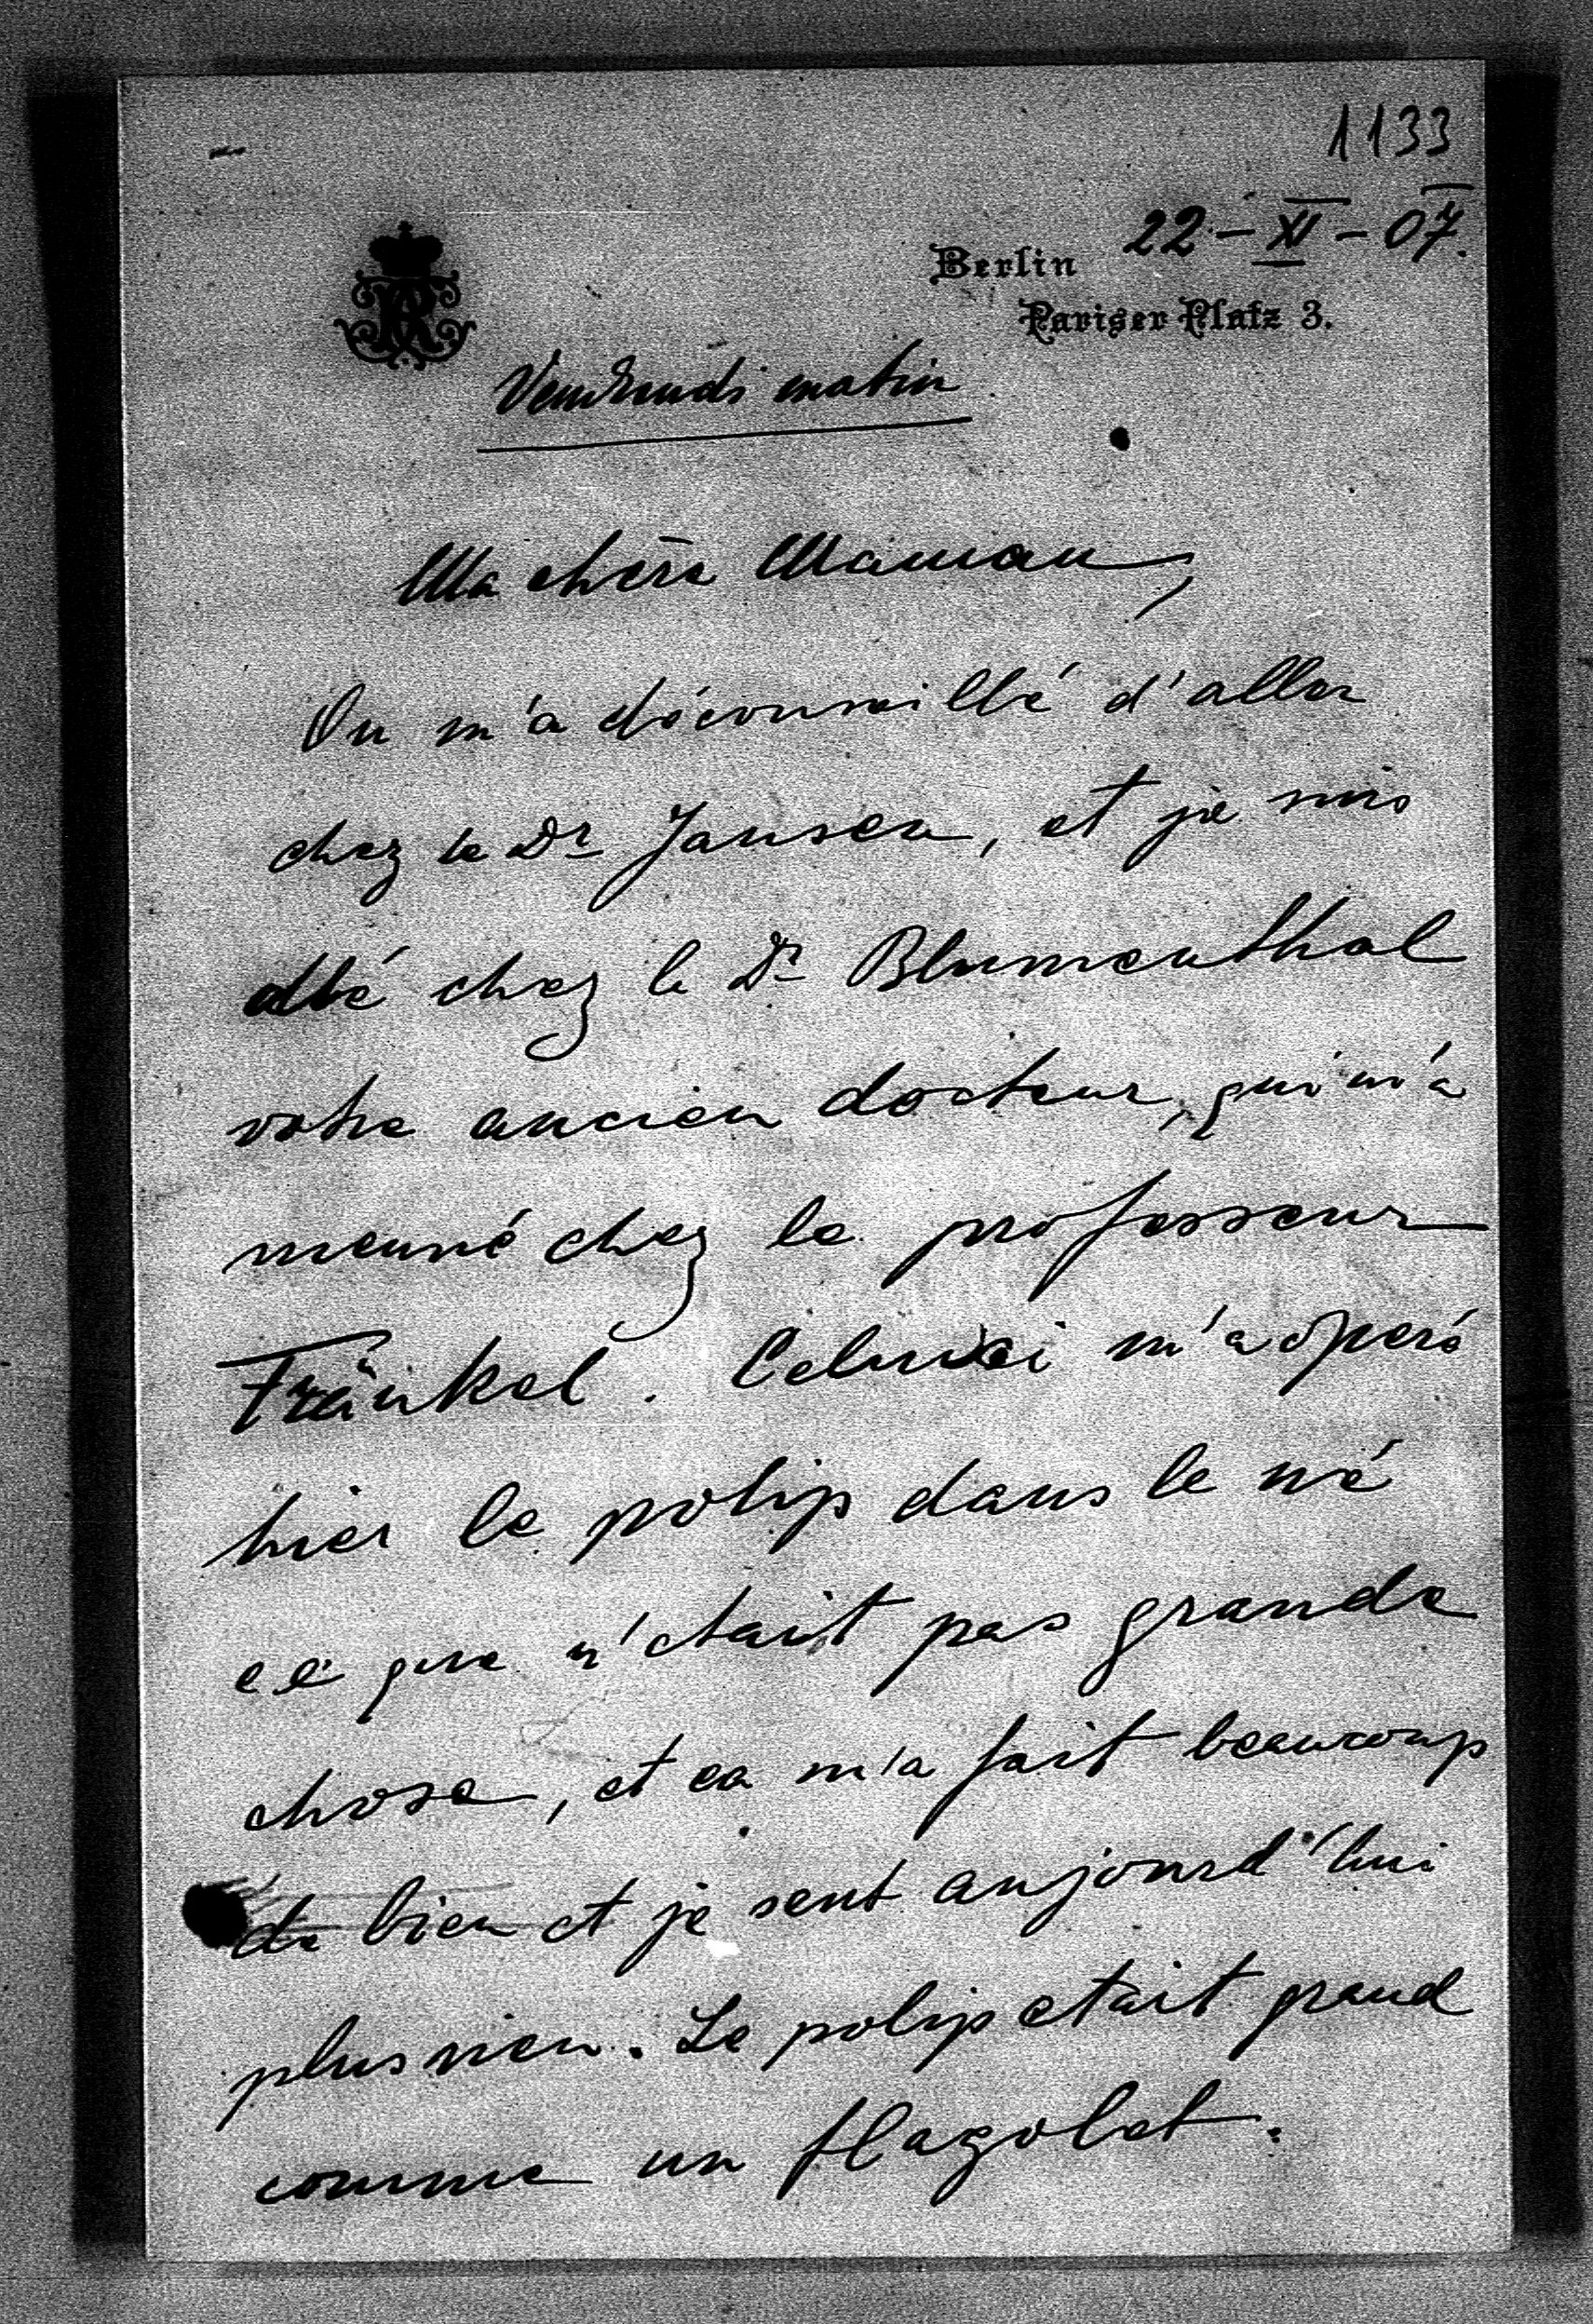 1133
22-XI-07.
Berlin
Pariser Platz 3.
Vendredi matin
Ma chère Maman,
On m'a déconseillé d'aller
chez le Dr Jansen, et je suis
allé chez le Dr Blumenthal
votre ancien docteur, qui m'a
menné chez le professeur
Fränkel. Celui ci m'a operé
hier le polip dans le né
ce que n'etait pas grande
chose, et ca m'a fait beaucoup
de bien et je sent aujourd'hui
plus rien. Le polip etait grand
comme un flagolet.